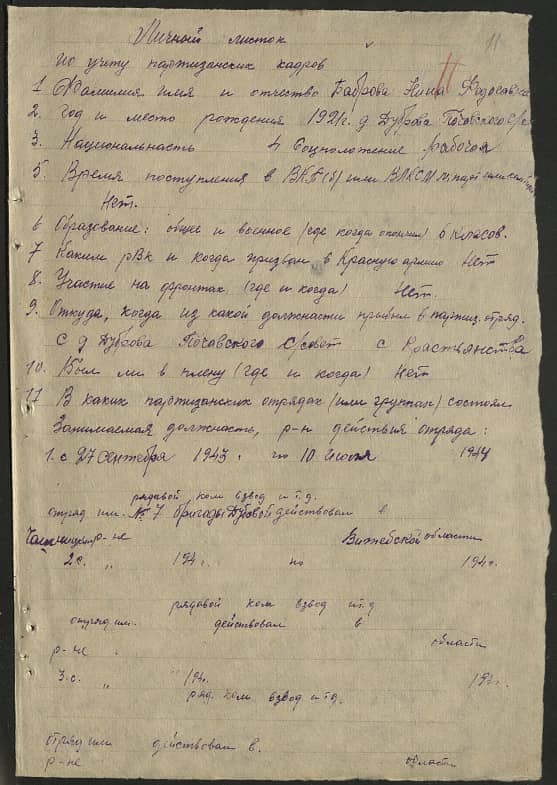 11
Личный листок
по учету партизанских кадров
1 Фамилия имя и отчество Баброва Нина
2. год и место рождения 1921г. д Дуброва Почовского с/с
3. Национальность 4 Соцположение рабочая
5. Время поступления в ВКП(б) или ВЛКСМ
Нет.
6 Образование: общее и военное (где когда окончил) 6 класов.
7 Каким рвк и когда призван в Красную армию Нет
8. Участие на фронтах (где и когда) Нет.
9. Откуда, когда из какой должности прибыл в партиз. отряд.
С д Дуброва Почавского С/совет с Крастьянства
10. Был ли в плену (где и когда) Нет
11 В каких партизанских отрядах (или группах) состоял
Занимаемая должность, р-н действия отряда:
1. с 27 Сентября 1943 г. по 10 Июля 1944
рядовой, ком взвод и т.д.
отряд им. № 7 бригады Дубовой действовал в
р-не Витебской области
2 с. " 194 г. по 194 г.
рядовой ком взвод и т.д
отряд им. действовал в
р-не области
3. с. " " 194г. 194 г.
ряд. ком. взвод и т.д.
отряд им действовал в.
р-не области